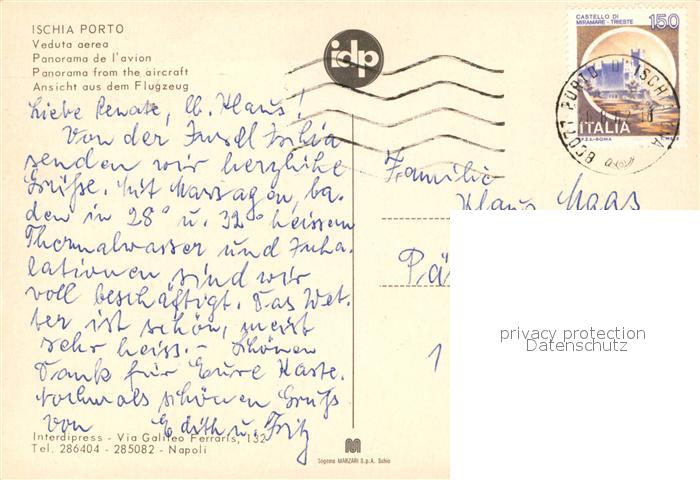 ISCHIA PORTO
Veduta aerea
Panorama de l'avion
Panorama from the aircraft
Ansicht aus dem Flugzeug
idp
CASTELLO DI
MIRAMARE - TRIESTE
150
ITALIA
Liebe Renate, lb. Klaus!
Von der Insel Ischia
senden wir herzliche
Grüße. Mit Massagen, ba-
den in 28° u. 32° heissem
Thermalwasser und Inha-
lationen sind wir
voll beschäftigt. Das Wet-
ter ist schön, meist
sehr heiss. - Schönen
Dank für Eure Karte.
Nochmals schönen Gruß
von Edith u. Fritz
Interdipress - Via Galileo Ferraris, 132
Tel. 286404 - 285082 - Napoli
Sagoma MARZARI S.p.A. Schio
Familie
Klaus Maas
1
privacy protection
Datenschutz